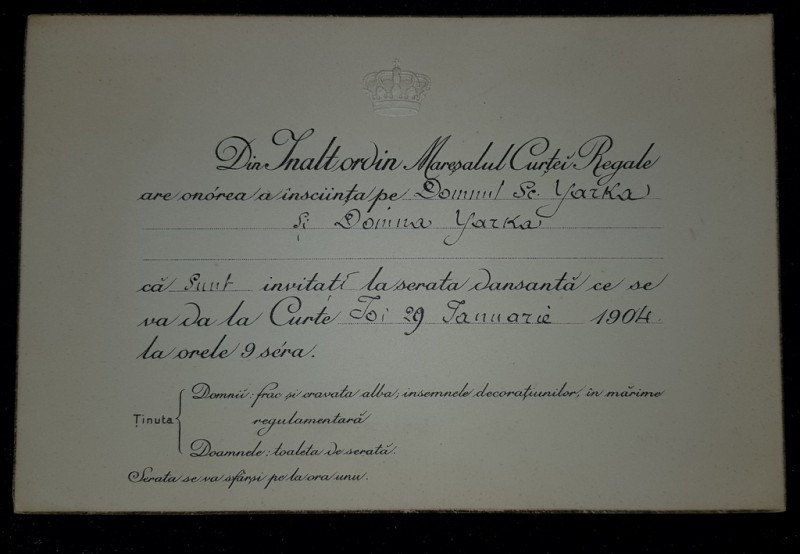 Din Inalt ordin Mareșalul Curței Regale
are onórea a însciința pe Domnul Sc. Yarka
și Domna Yarka
că sunt invitati la serata dansantă ce se
va da la Curte Joi 29 Ianuarie 1904
la orele 9 séra.
Ținuta
Domnii: frac și cravata alba; insemnele decorațiunilor, în mărime
regulamentară
Doamnele: toaleta de serată.
Serata se va sfârși pe la ora unu.